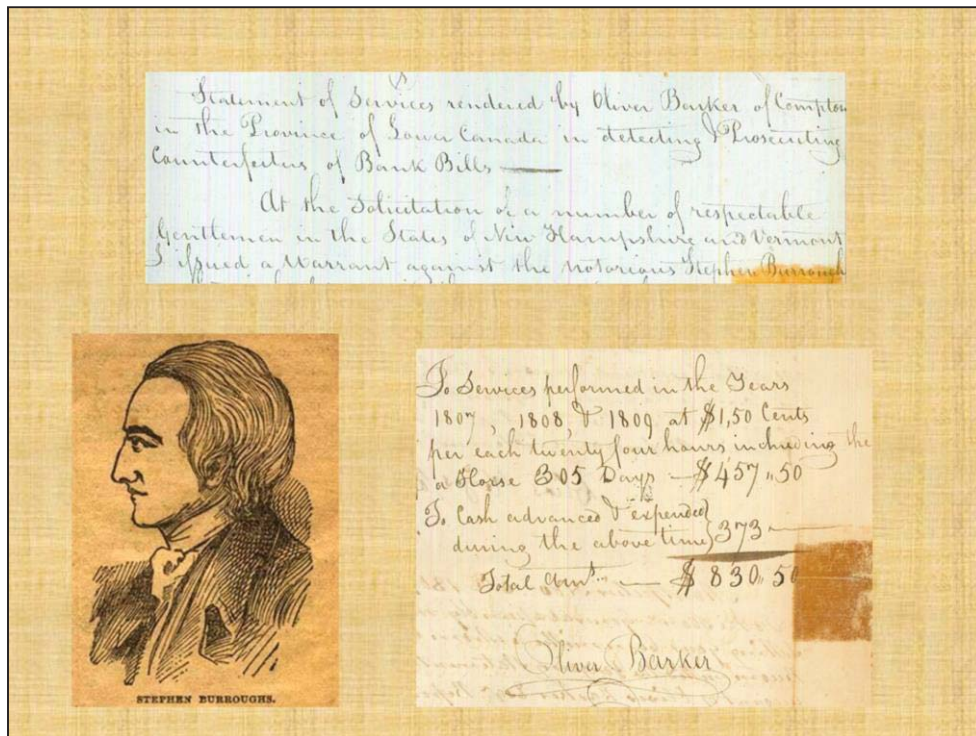 Statement of Services rendered by Oliver Barker of Compton
in the Province of Lower Canada in detecting & Prosecuting
Counterfeiters of Bank Bills —
At the Solicitation of a number of respectable
Gentlemen in the States of New Hampshire and Vermont
I issued a Warrant against the notorious Stephen Burrough
STEPHEN BURROUGHS.
To Services performed in the Years
1807, 1808, & 1809 at $1,50 Cents
per each twenty four hours including the
a Horse 305 Days — $457"50
To Cash advanced & expended
during the above time } 373 —
Total Amt. — $830"50
Oliver Barker